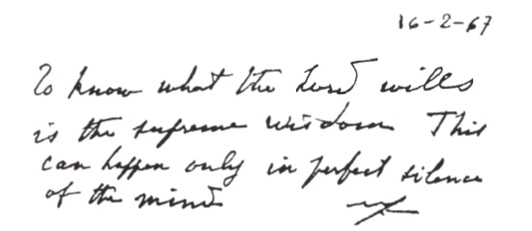 16-2-67
To know what the Lord wills
is the supreme wisdom This
can happen only in perfect silence
of the mind